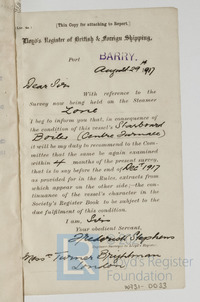 (This Copy for attaching to Report.)
Lloyd's Register of British & Foreign Shipping,
Port BARRY.
August 29th 1917
Dear Sir
With reference to the
Survey now being held on the Steamer
I beg to inform you that, in consequence of
the condition of this vessel's Starboard
Boiler (Centre Furnace)
it will be my duty to recommend to the Com-
mittee that the same be again examined
within 4 months of the present survey,
that is to say before the end of Decr 1917
as provided for in the Rules, extracts from
which appear on the other side; the con-
tinuance of the vessel's character in the
Society's Register Book to be subject to the
due fulfilment of this condition.
I am, Sir
Your obedient Servant,
Frederick Stephens
Messrs Turner Brightman
London
Lloyd's Register
Foundation
W931-0023